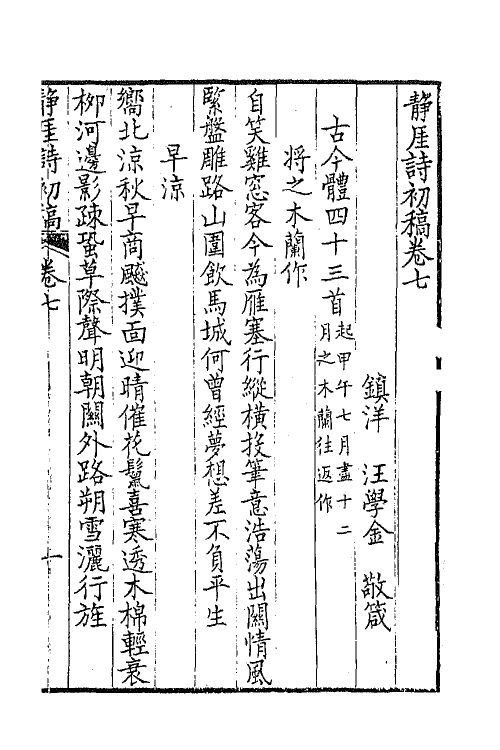 静厓詩初稿卷七
鎮洋　汪學金　敬箴
古今體四十三首起甲午七月盡十二
月之木蘭往返作
将之木蘭作
自笑雞窓客今為雁塞行縱横投筆意浩蕩出關情風
緊盤雕路山圍飲馬城何曾經夢想差不負平生
早涼
嚮北涼秋早商飈撲面迎晴催花鬣喜寒透木棉輕衰
柳河邊影疎蛩草際聲明朝關外路朔雪灑行旌
静厓詩初稿　卷七　一